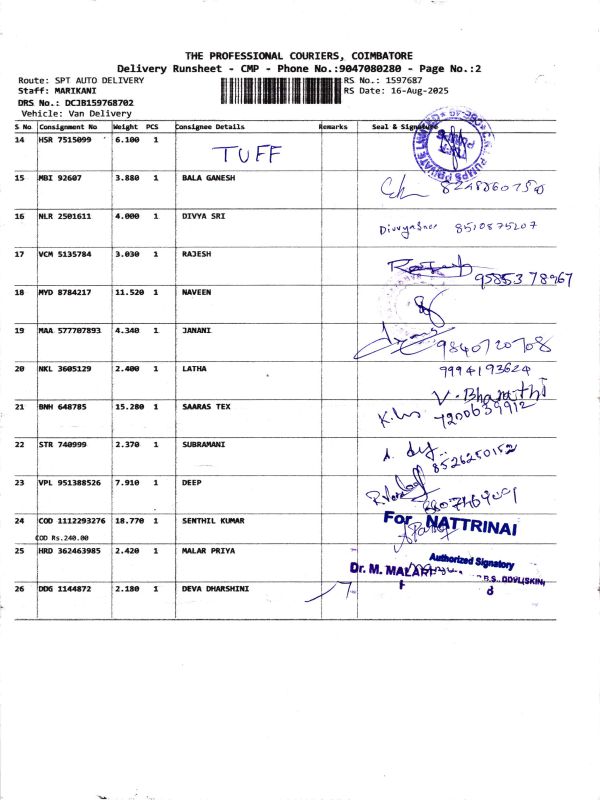 THE PROFESSIONAL COURIERS, COIMBATORE
Delivery Runsheet - CMP - Phone No.:9047080280 - Page No.:2
Route: SPT AUTO DELIVERY RS No.: 1597687
Staff: MARIKANI RS Date: 16-Aug-2025
DRS No.: DCJB159768702
Vehicle: Van Delivery
S No Consignment No Weight PCS Consignee Details Remarks Seal & Signature
14 HSR 7515099 6.100 1 TUFF
15 MBI 92607 3.880 1 BALA GANESH
16 NLR 2501611 4.000 1 DIVYA SRI 8510875207
17 VCM 5135784 3.030 1 RAJESH
9585378967
18 MYD 8784217 11.520 1 NAVEEN
19 MAA 577707893 4.340 1 JANANI 9840720708
20 NKL 3605129 2.400 1 LATHA 9994193624
V. Bharathi
21 BNH 648785 15.280 1 SAARAS TEX 7200639912
22 STR 740999 2.370 1 SUBRAMANI
8526250152
23 VPL 951388526 7.910 1 DEEP
24 COD 1112293276 18.770 1 SENTHIL KUMAR For NATTRINAI
COD Rs.240.00
25 HRD 362463985 2.420 1 MALAR PRIYA Authorized Signatory
Dr. M.
26 DDG 1144872 2.180 1 DEVA DHARSHINI